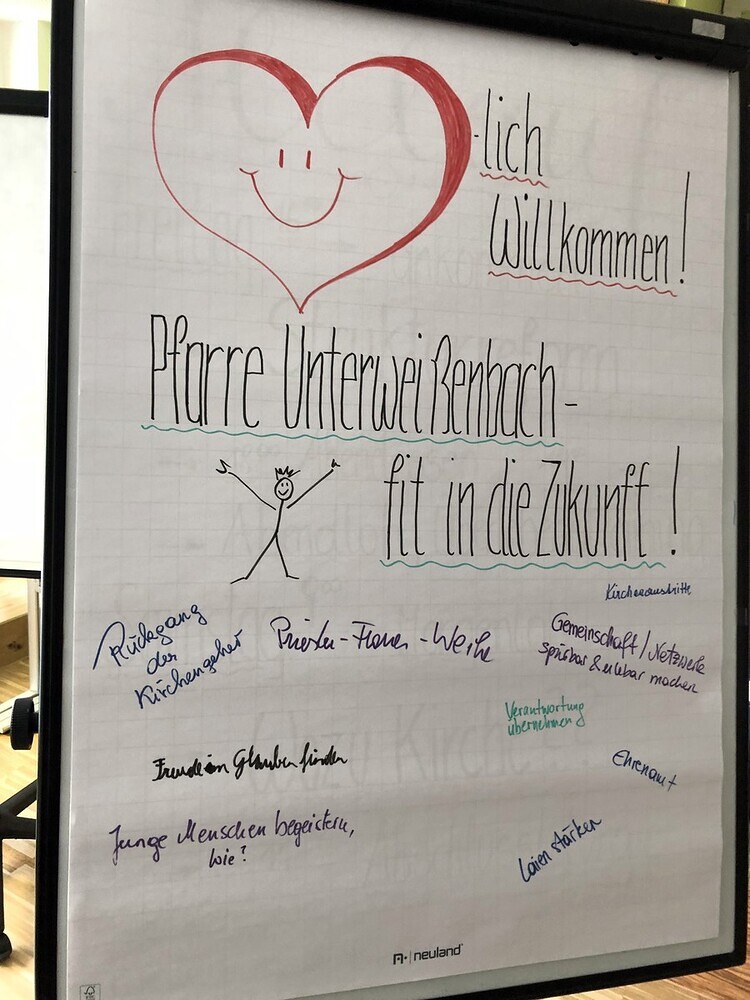 -lich
Willkommen!
Pfarre Unterweißenbach -
fit in die Zukunft!
Kirchenaustritte
Rückgang
der
Kirchengeher
Priester-Frauen-Weihe
Gemeinschaft/Netzwerke
spürbar & erlebbar machen
Verantwortung
übernehmen
Freude im Glauben finden
Ehrenamt
Junge Menschen begeistern,
wie?
Laien stärken
neuland